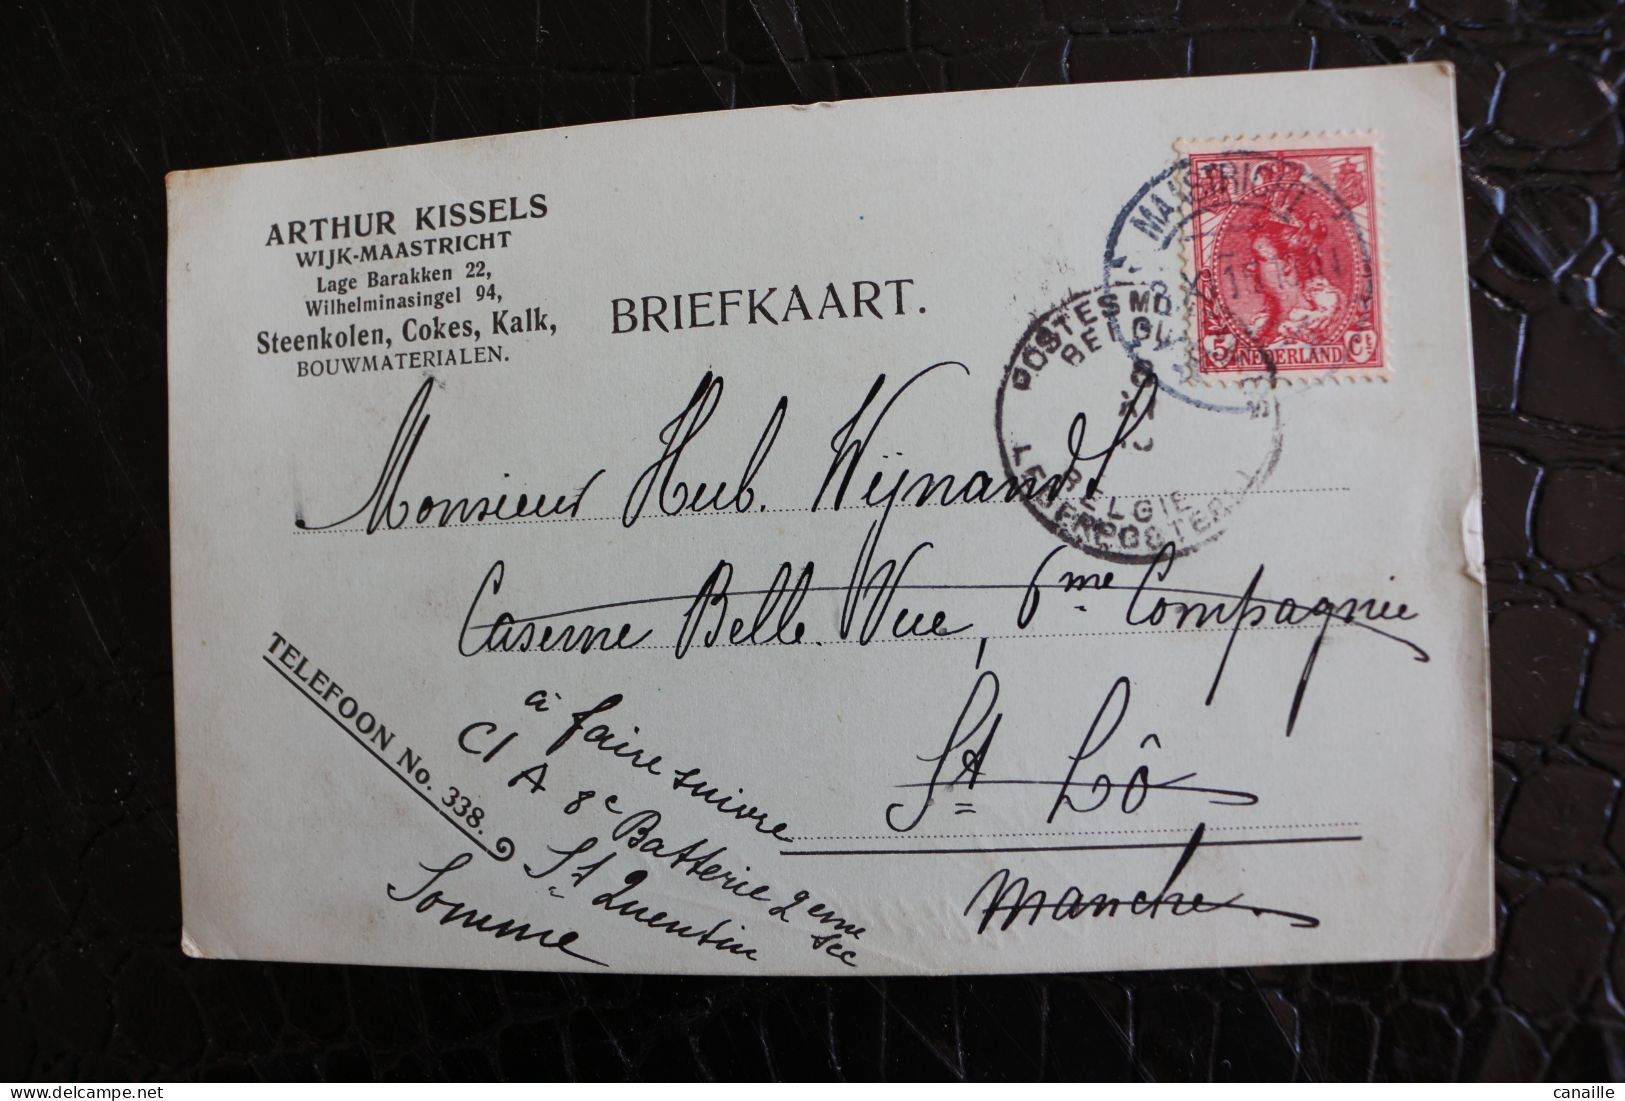 ARTHUR KISSELS
WIJK-MAASTRICHT
Lage Barakken 22,
Wilhelminasingel 94,
Steenkolen, Cokes, Kalk,
BOUWMATERIALEN.
BRIEFKAART.
MAASTRICHT
5 NEDERLAND Ct
POSTES
BELGIE
Monsieur Hub. Wijnands
Caserne Belle Vue, 6me Compagnie
St Lô
Manche
TELEFOON No. 338.
à faire suivre
8e Batterie 2eme
St Quentin
Somme
delcampe.net
canaille